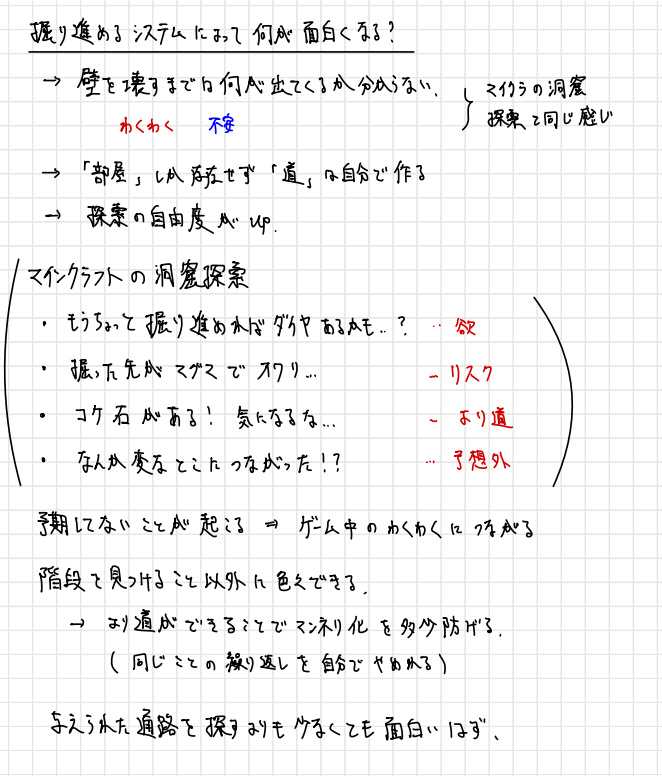 掘り進めるシステムによって何が面白くなる？
→ 壁を壊すまでは何が出てくるか分からない。
わくわく 不安
マイクラの洞窟
探索と同じ感じ
→ 「部屋」しか存在せず「道」は自分で作る
→ 探索の自由度がup.
マインクラフトの洞窟探索
・ もうちょっと掘り進めればダイヤあるかも..? ‥欲
・ 掘った先がマグマでオワリ... −リスク
・ コケ石がある! 気になるな... −より道
・ なんか変なとこにつながった!? …予想外
予期してないことが起こる ⇒ ゲーム中のわくわくにつながる
階段を見つけること以外に色々できる.
→ より道ができることでマンネリ化を多少防げる.
(同じことの繰り返しを自分でやめれる)
与えられた通路を探すよりも少なくても面白いはず.